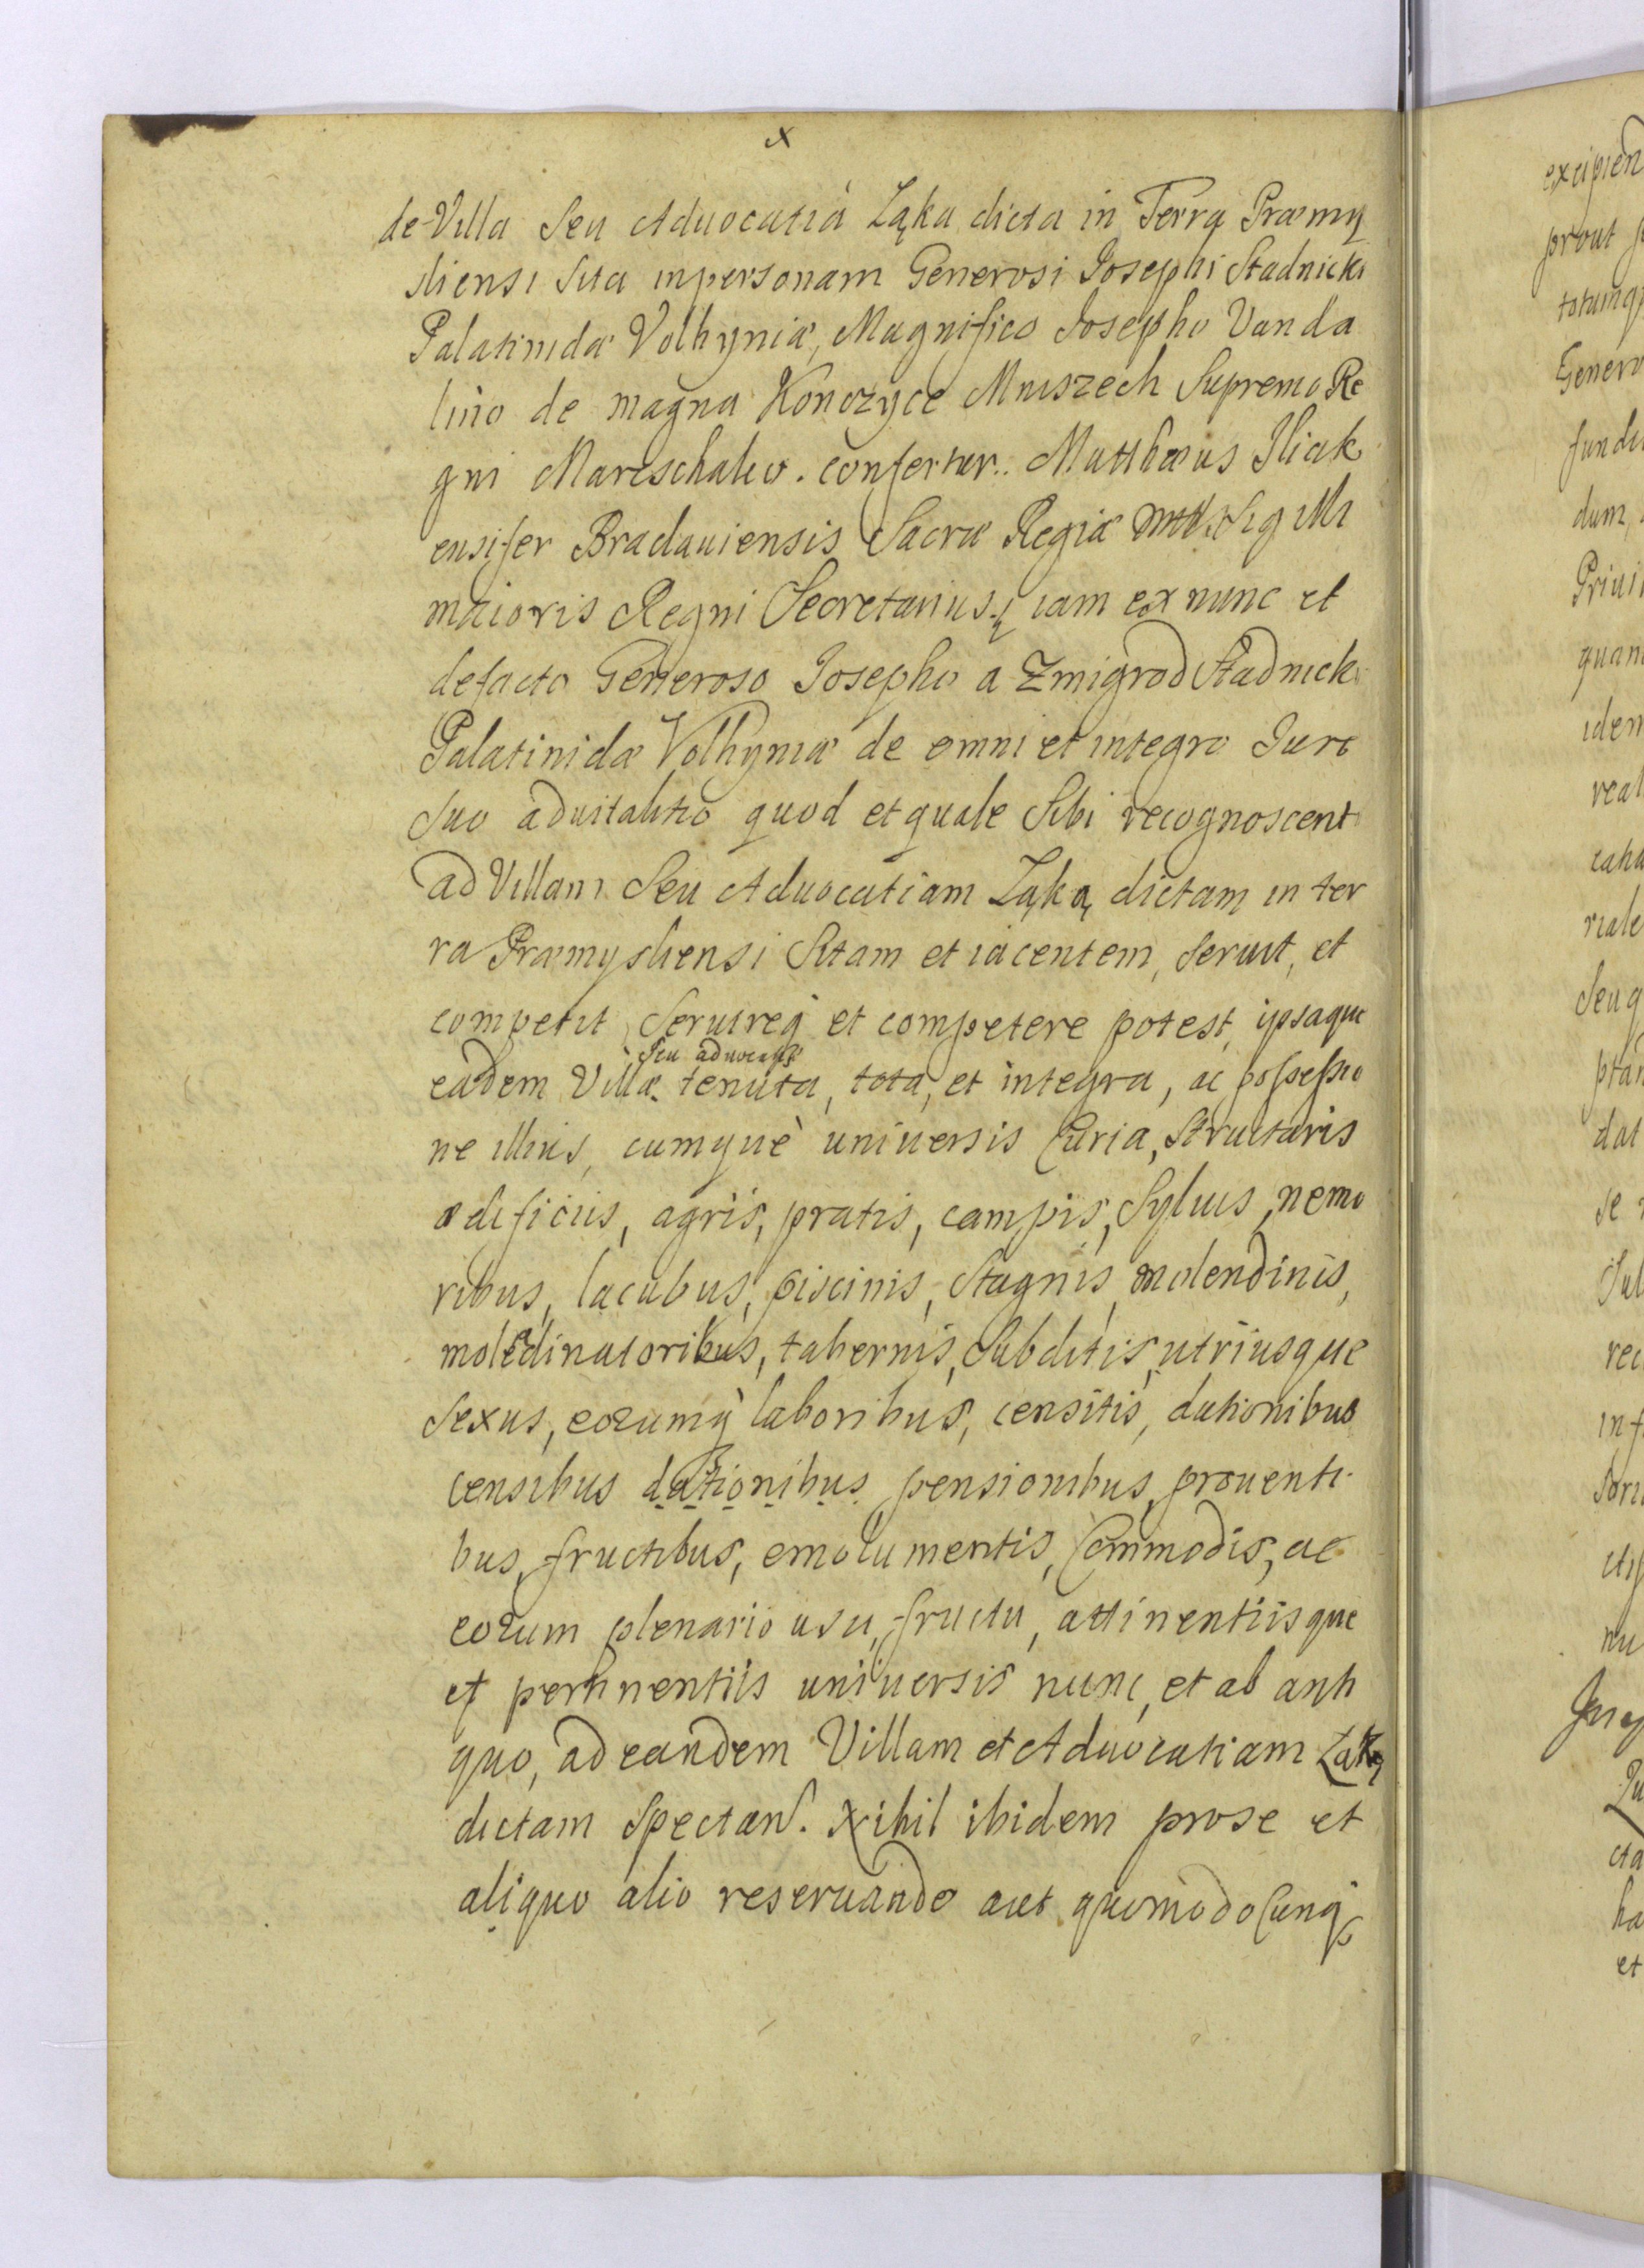 x
de Villa Seu Aduocatià Łąka dicta in Terra Præmy
sliensi Sita inpersonam Generosi Josephi Stadnicki
Palatinidæ Volhyniæ, Magnifico Josepho Vanda
lino de magna Kończyce Mniszech Supremo Re
gni Mareschalco. confertur.. Matthæus Iliak
ensifer Braclauiensis Sacræ Regiæ Mttis Sigilli
maioris Regni Secretarius, iam ex nunc et
defacto Generoso Josepho a Zmigrod Stadnicki
Palatinidæ Volhyniæ de omni et integro Jure
Suo aduitalitio quod et quale Sibi recognoscenti
ad Villam Seu Aduocatiam Łąka dictam in ter
ra Præmysliensi Sitam et iacentem, Seruit, et
competit, Seruireq et competere potest, ipsaque
Seu aduocatiæ
eadem Villæ tenuta, tota, et integra, ac possessio
ne illius, cumquè uniuersis Curia, Structuris
ædificiis, agris, pratis, campis, Syluis, nemo
ribus, lacubus, piscinis, Stagnis, molendinis,
moledinatoribus, tabernis, Subditis utriusque
Sexus, eorumq laboribus, censitis, dationibus
censibus dationibus pensionibus, prouenti
bus, fructibus, emolumentis, Commodis, ac
eorum plenario usu, fructu, attinentiisque
et pertinentiis uniuersis nunc, et ab anti
quo, ad eandem Villam et Aduocatiam Łąka
dictam Spectan. Nihil ibidem prose et
aliquo alio reseruando aut quomodocunq
excipien
prout
totumq
Genero
fundi
dum,
Priui
quam
idem
real
riale
Seu q
dat
se
rec
inf
et